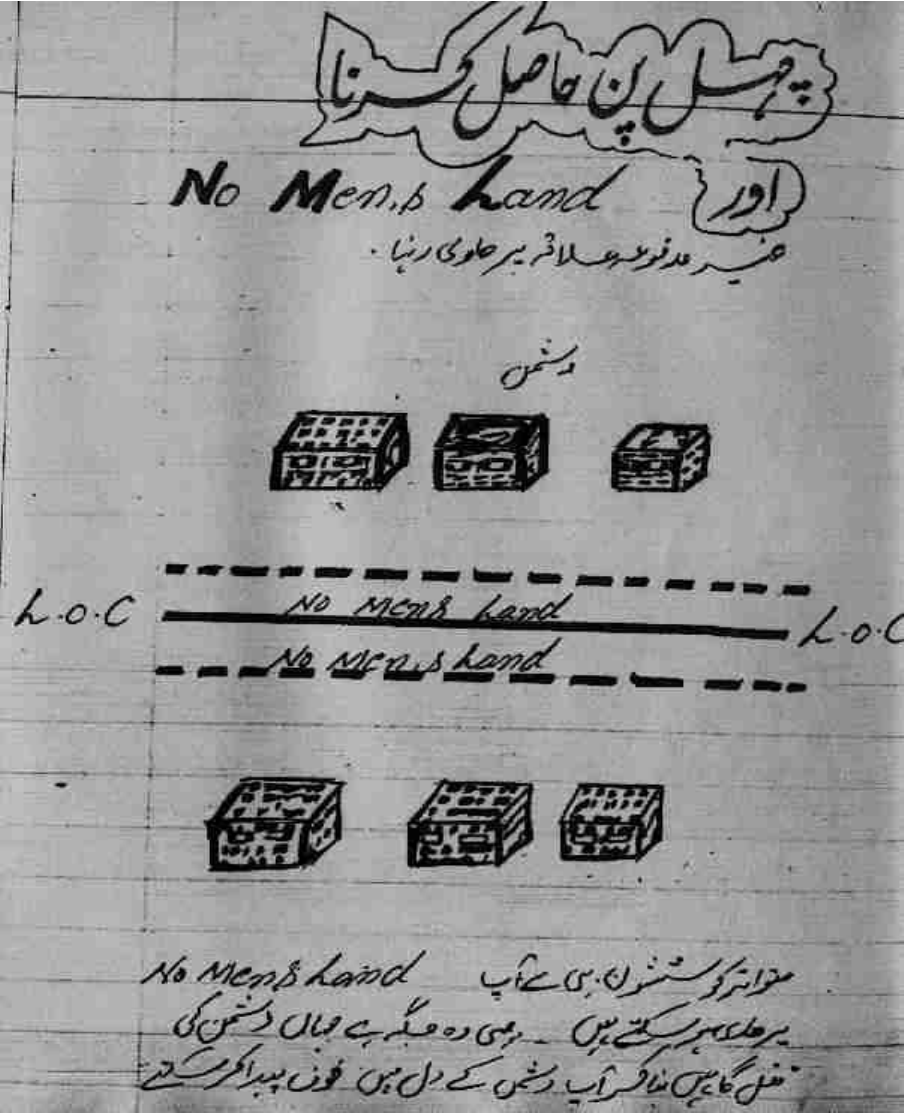 پہل پن حاصل کرنا
اور No Men,s Land
غیر مدفوعہ علاقہ پر حاوی رہنا۔
دشمن
L.O.C No Mens Land L.O.C
No Men,s Land
متواتر کوششوں ہی سے آپ No Mens Land
پر حاوی ہو سکتے ہیں ۔ یہی وہ جگہ ہے جہاں دشمن کی
بنا کر آپ دشمن کے دل میں خوف پیدا کر سکتے